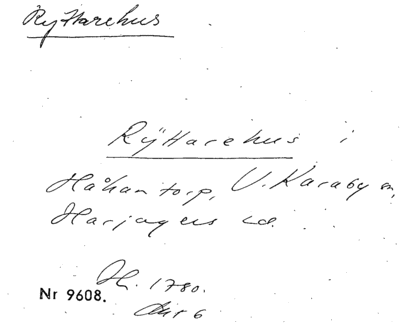 Ryttarehus
Ryttarehus i
Håkantorp, V. Karaby sn,
Harjagers hd.
Nr 9608.
1780.